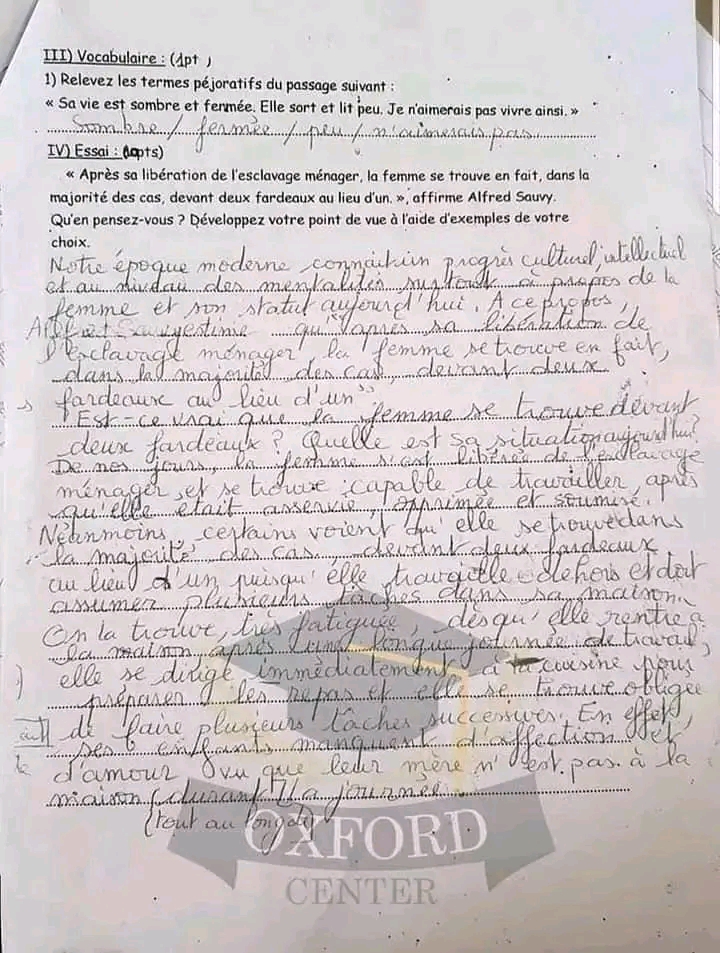 III) Vocabulaire : (1pt )
1) Relevez les termes péjoratifs du passage suivant :
« Sa vie est sombre et fermée. Elle sort et lit peu. Je n'aimerais pas vivre ainsi. »
Sombre / fermée / peu / n'aimerais pas
IV) Essai : (10pts)
« Après sa libération de l'esclavage ménager, la femme se trouve en fait, dans la
majorité des cas, devant deux fardeaux au lieu d'un. », affirme Alfred Sauvy.
Qu'en pensez-vous ? Développez votre point de vue à l'aide d'exemples de votre
choix.
Notre époque moderne connait un progrès culturel, intellectuel
et au niveau des mentalités surtout à propos de la
femme et son statut aujourd'hui. A ce propos,
Alfred Sauvy estime qu'"après sa libération de
l'esclavage ménager, la femme se trouve en fait,
dans la majorité des cas, devant deux
fardeaux au lieu d'un"
Est-ce vrai que la femme se trouve devant
deux fardeaux ? Quelle est sa situation aujourd'hui?
De nos jours, la femme s'est libérée de l'esclavage
ménager et se trouve capable de travailler après
qu'elle était asservie, opprimée et soumise.
Néanmoins, certains voient qu'elle se trouve dans
la majorité des cas, devant deux fardeaux
au lieu d'un puisqu'elle travaille dehors et doit
assumer plusieurs tâches dans sa maison.
On la trouve, très fatiguée, dès qu'elle rentre à
la maison après une longue journée de travail,
elle se dirige immédiatement à la cuisine pour
préparer les repas et elle se trouve obligée
de faire plusieurs tâches successives. En effet,
ses enfants manquent d'affection et
d'amour vu que leur mère n'est pas à la
maison durant la journée.
(tout au long de)
OXFORD
CENTER